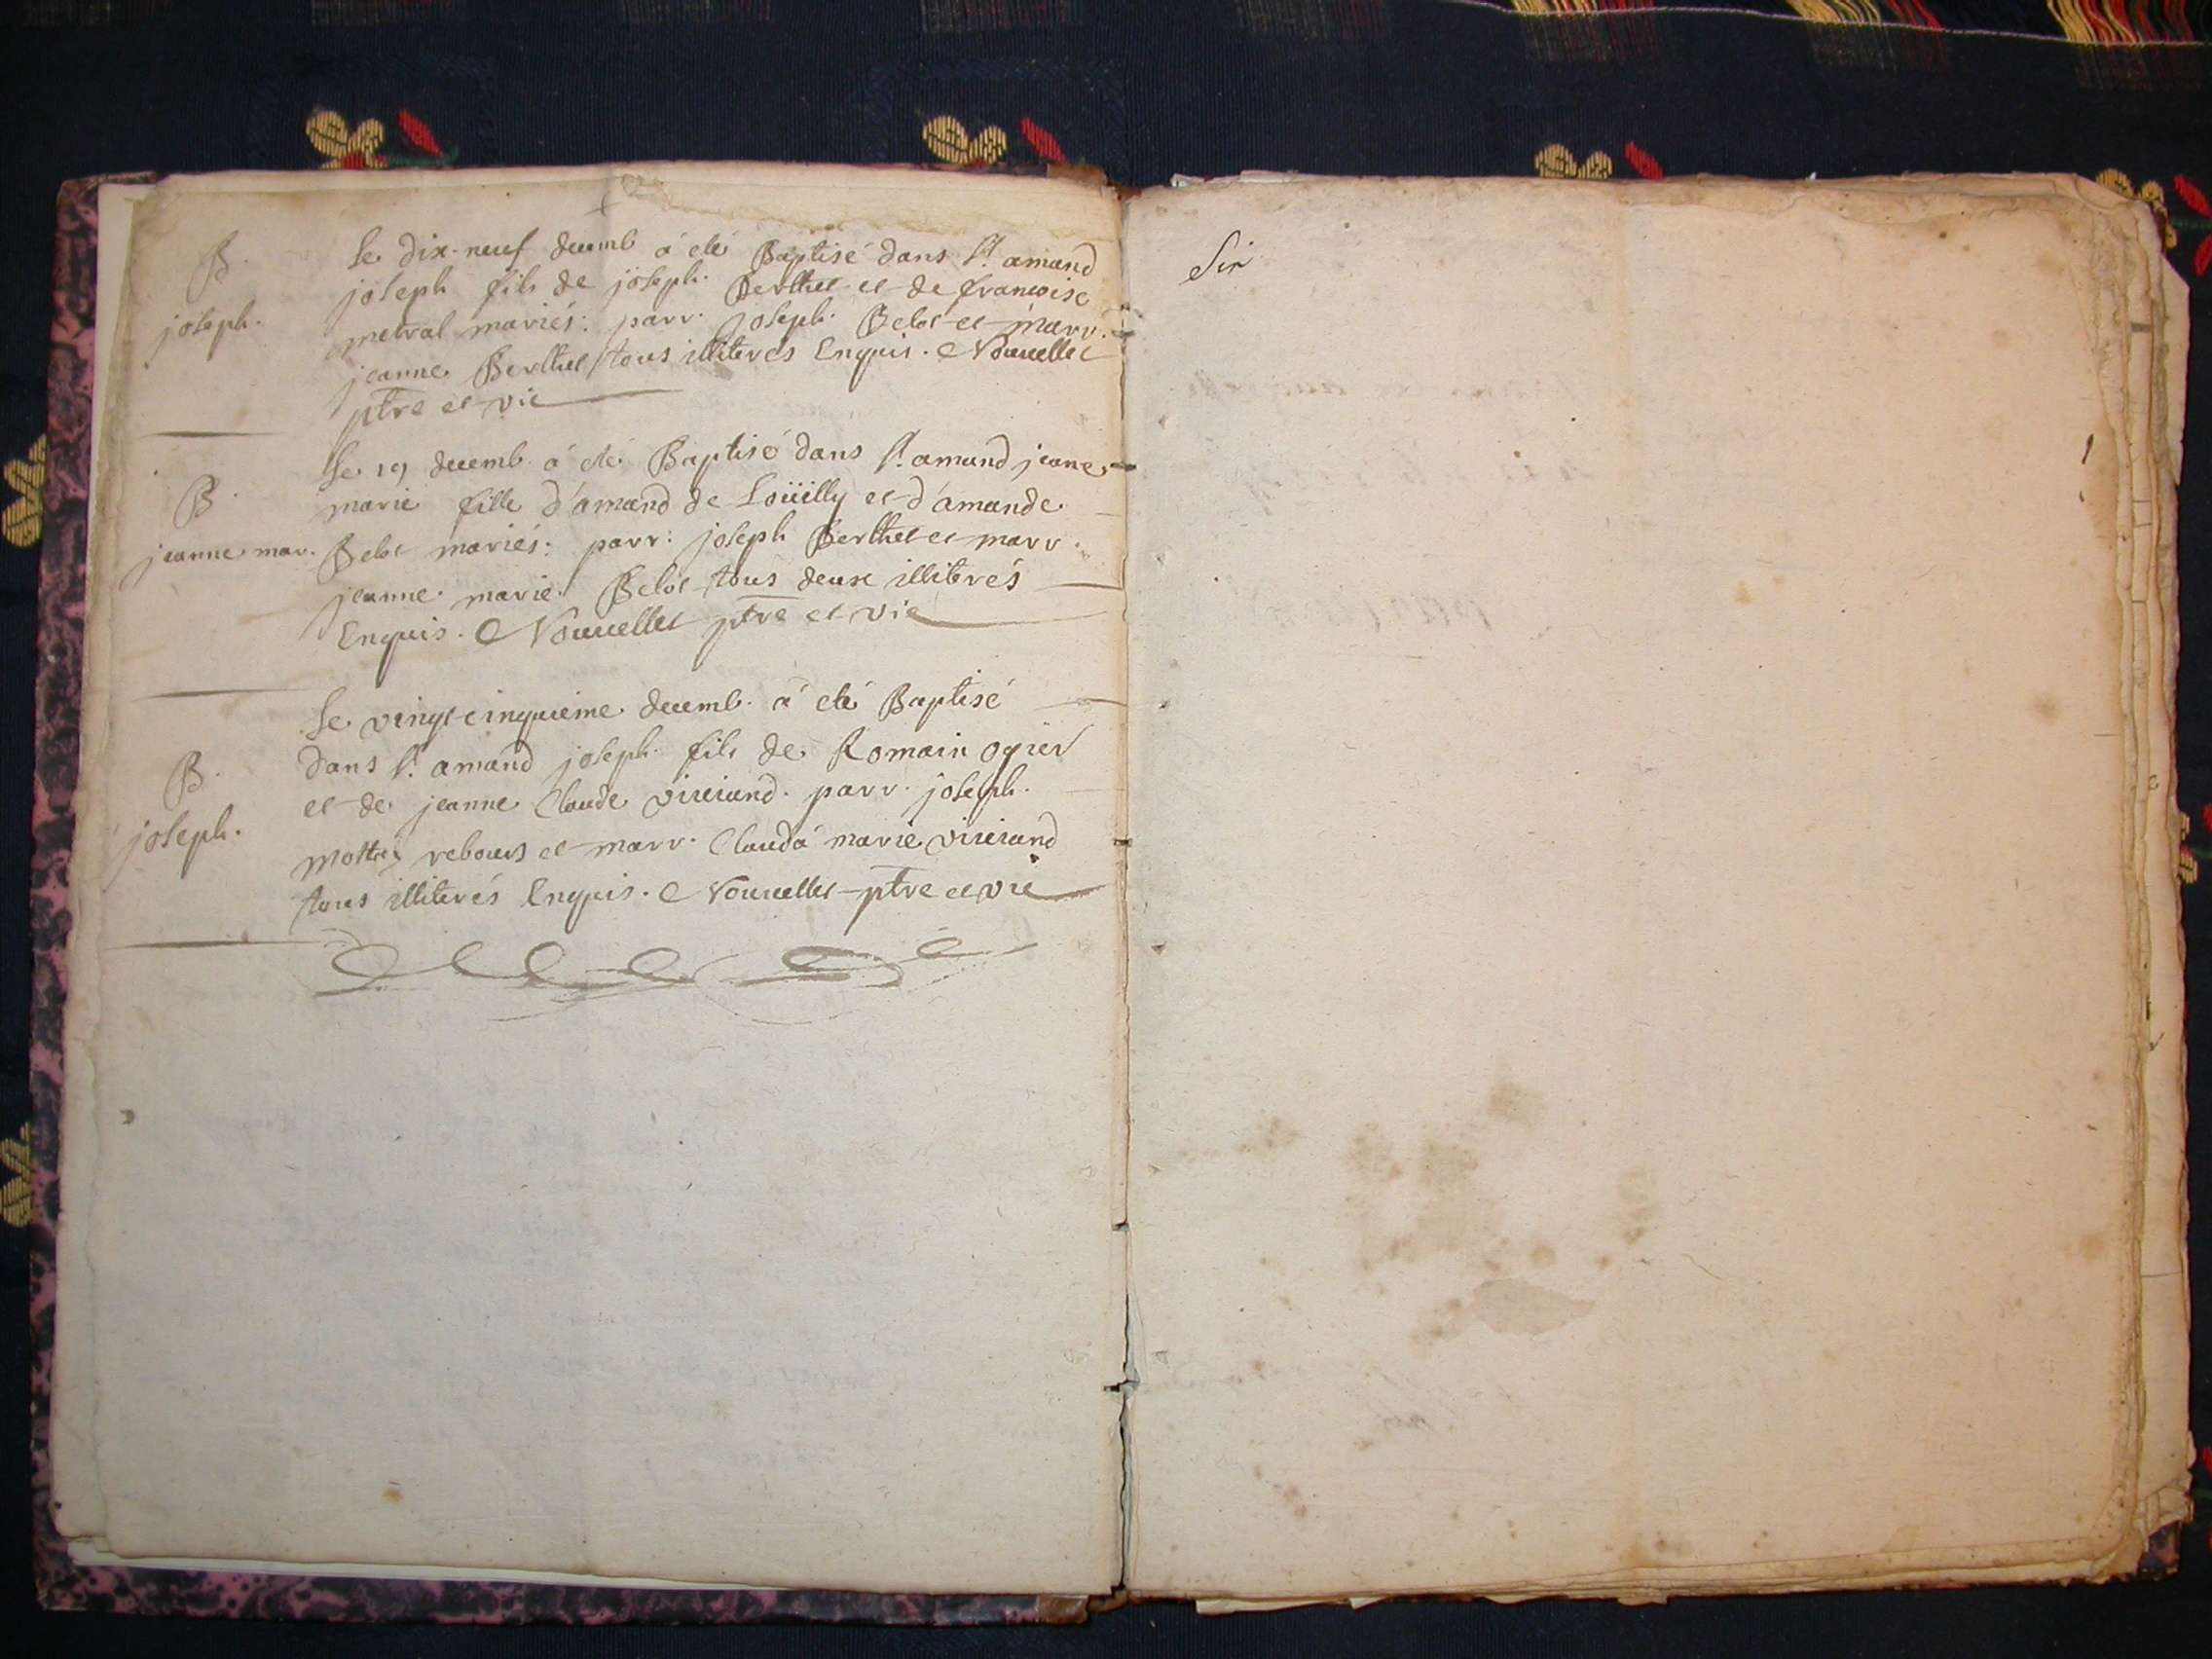 B.
joseph.
Le dix-neuf decemb a eté Baptisé dans St amand
joseph fils de joseph. Berthet et de francoise
metral mariés: parr. joseph. Belot et marr.
jeanne Berthet tous illiterés Enquis. C Nouvellet
ptre et vic
B.
jeanne mar.
Le 19 decemb. a eté Baptisé dans St amand jeane
marie fille d'amand de Loüilly et d'amande
Belot mariés: parr: joseph Berthet et marr.
jeanne marie Belot tous deux illiterés
Enquis. C Nouvellet ptre et vic
B.
joseph.
Le vingt cinquieme decemb. a eté Baptisé
dans St amand joseph fils de Romain ogier
et de jeanne Claude viverand. parr. joseph.
mottey rebours et marr. Clauda marie viverand
tous illiterés Enquis. C Nouvellet ptre et vic
Sir